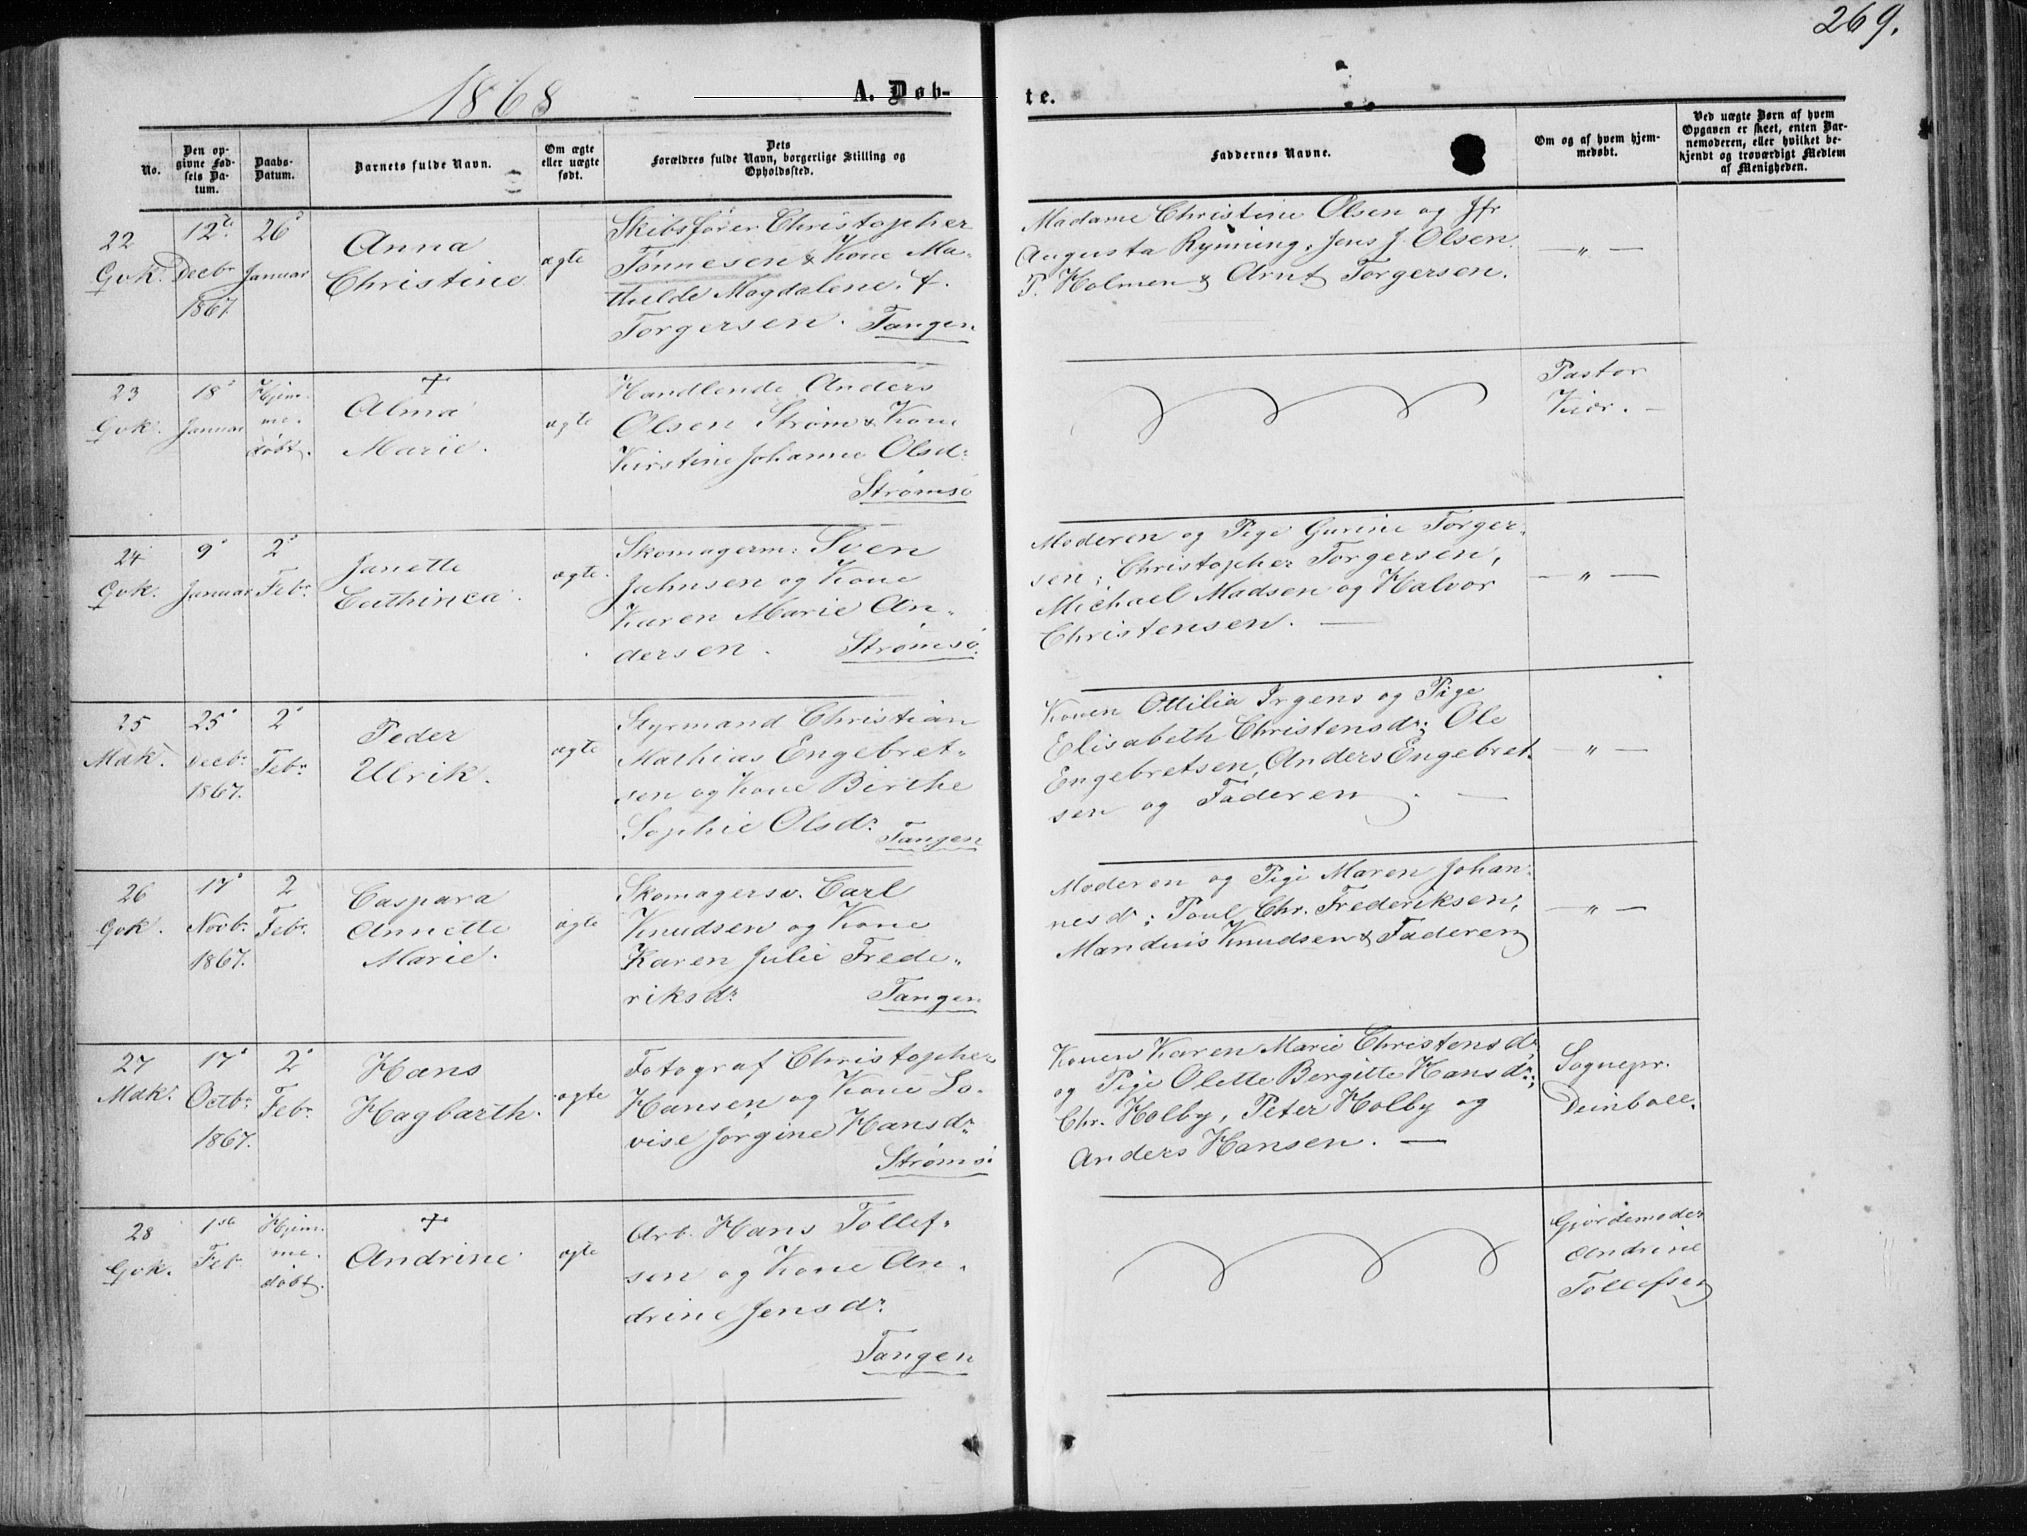 269.
1868
A. Døb-
te.
No.
Den op-
givne Fød-
sels Da-
tum.
Daabs-
Datum.
Barnets fulde Navn.
Om ægte
eller uægte
født.
Dets
Forældres fulde Navn, borgerlige Stilling og
Opholdssted.
Faddernes Navne.
Om og af hvem hjem-
medøbt.
Ved uægte Børn af hvem
Opgaven er skeet, enten Bar-
nemoderen, eller hvilket be-
kjendt og troværdigt Medlem
af Menigheden.
22
Qvk.
12te
Decbr
1867.
26'
Januar
Anna
Christine
ægte
Skibsfører Christopher
Tønnesen & Kone Ma-
thilde Magdalene, f.
Torgersen. Tangen
Madame Christine Olsen og Jfr
Augusta Rynning, Jens J. Olsen.
P. Holmen & Arnt Torgersen.
— „ —
23
Qvk.
18'
Januar
Hjem-
me-
døbt.
+
Alma
Marie.
ægte
Handlende Anders
Olsen Strøm & Kone
Kirstine Johanne Olsdr
Strømsø
Pastor
Kiær. —
24
Qvk.
9'
Januar
2'
Febr.
Janette
Cathinca.
ægte.
Skomagerm: Sven
Jahnsen og Kone
Karen Marie An-
dersen. Strømsø.
Moderen og Pige Gurine Torger-
sen; Christopher Torgersen,
Michael Madsen og Halvor
Christensen. —
— „ —
25
Mdk.
25'
Decbr
1867.
2'
Febr.
Peder
Ulrik.
ægte
Styrmand Christian
Mathias Engebret-
sen og Kone Birthe
Sophie Olsdr. Tangen
Konen Ottilia Irgens og Pige
Elisabeth Christensdr; Ole
Engebretsen, Anders Engebret-
sen og Faderen. —
— „ —
26
Qvk.
17'
Novbr.
1867.
2
Febr.
Caspara
Annette
Marie.
ægte
Skomagersv. Carl
Knudsen og Kone
Karen Julie Frede-
riksdr. Tangen
Moderen og Pige Maren Johan-
nesdr; Poul Chr. Frederiksen,
Knudsen & Faderen
— „ —
27
Mdk.
17'
Octbr.
1867.
2'
Febr.
Hans
Hagbarth.
ægte
Fotograf Christopher
Hansen og Kone Lo-
vise Jørgine Hansdr.
Strømsø
Konen Karen Marie Christensdr
og Pige Olette Bergitte Hansdr;
Chr. Holby, Peter Holby og
Anders Hansen. —
Sognepr.
Deinboll.
28
Qvk.
1ste
Febr
Hjem-
me-
døbt.
+
Andrine
ægte
Arb. Hans Tollef-
sen og Kone An-
drine Jensdr.
Tangen
Gjordemoder
Andrine
Tollefsen